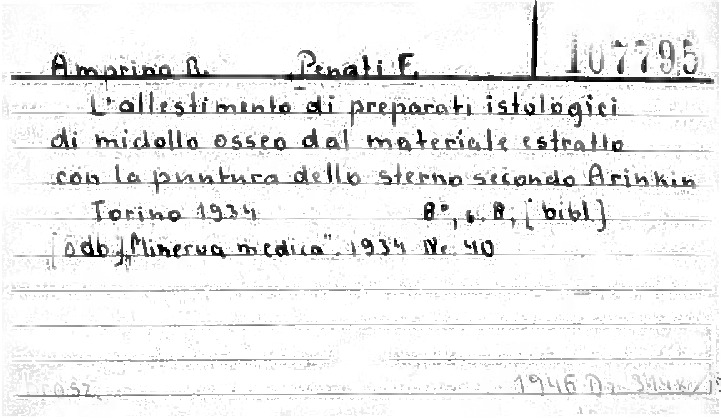 Amprino R. Penati F. 107795
L'allestimento di preparati istologici
di midollo osseo dal materiale estratto
con la puntura dello sterno secondo Arinkin
Torino 1934 8°, s. 8, [bibl.]
[Odb. „Minerva medica". 1934 Nr. 40
brosz. 1946 D.